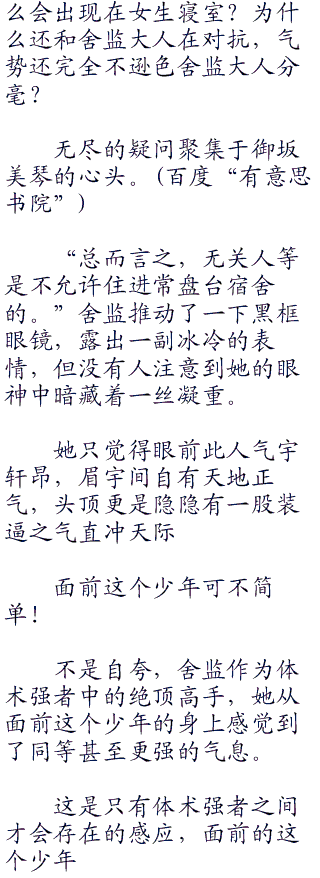 么会出现在女生寝室？为什
么还和舍监大人在对抗，气
势还完全不逊色舍监大人分
毫？
无尽的疑问聚集于御坂
美琴的心头。(百度“有意思
书院”)
“总而言之，无关人等
是不允许住进常盘台宿舍
的。”舍监推动了一下黑框
眼镜，露出一副冰冷的表
情，但没有人注意到她的眼
神中暗藏着一丝凝重。
她只觉得眼前此人气宇
轩昂，眉宇间自有天地正
气，头顶更是隐隐有一股装
逼之气直冲天际
面前这个少年可不简
单！
不是自夸，舍监作为体
术强者中的绝顶高手，她从
面前这个少年的身上感觉到
了同等甚至更强的气息。
这是只有体术强者之间
才会存在的感应，面前的这
个少年